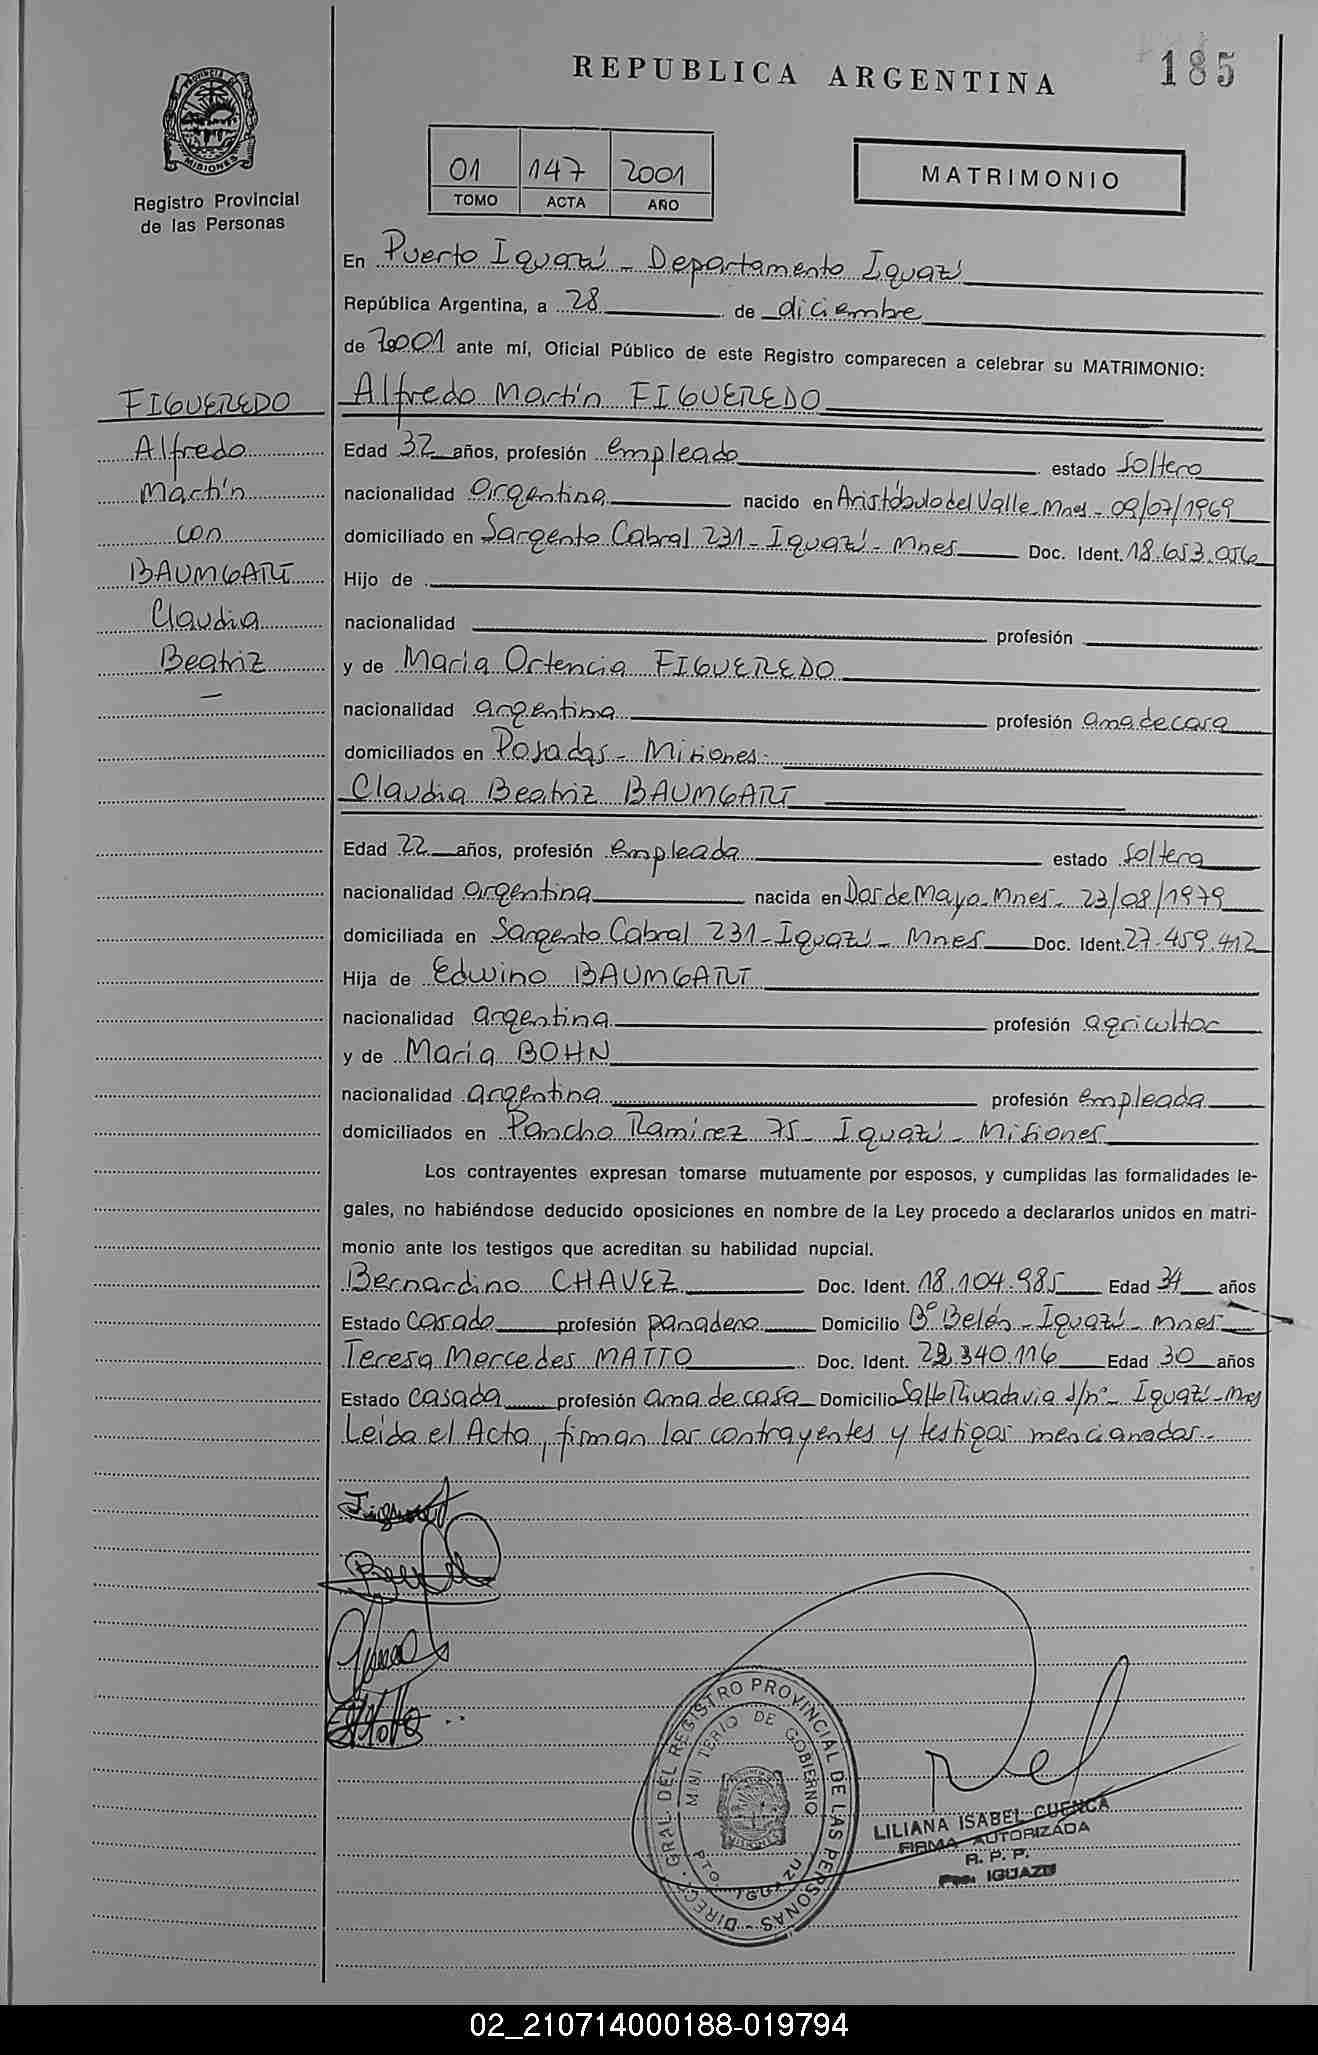 REPUBLICA ARGENTINA
185
PROVINCIA DE
MISIONES
Registro Provincial
de las Personas
01 147 2001
TOMO ACTA AÑO
MATRIMONIO
En Puerto Iguazú - Departamento Iguazú
República Argentina, a 28 de diciembre
de 2001 ante mí, Oficial Público de este Registro comparecen a celebrar su MATRIMONIO:
FIGUEREDO
Alfredo
Martín
con
BAUMGART
Claudia
Beatriz
-
Alfredo Martín FIGUEREDO
Edad 32 años, profesión empleado estado soltero
nacionalidad argentina nacido en Aristóbulo del Valle - Mnes - 09/07/1969
domiciliado en Sargento Cabral 231 - Iguazú - Mnes Doc. Ident. 18.653.056
Hijo de
nacionalidad profesión
y de María Ortencia FIGUEREDO
nacionalidad argentina profesión ama de casa
domiciliados en Posadas - Misiones.
Claudia Beatriz BAUMGART
Edad 22 años, profesión empleada estado soltera
nacionalidad argentina nacida en Dos de Mayo - Mnes - 23/08/1979
domiciliada en Sargento Cabral 231 - Iguazú - Mnes Doc. Ident. 27.459.412
Hija de Edwino BAUMGART
nacionalidad argentina profesión agricultor
y de María BOHN
nacionalidad argentina profesión empleada
domiciliados en Pancho Ramírez 75 - Iguazú - Misiones
Los contrayentes expresan tomarse mutuamente por esposos, y cumplidas las formalidades le-
gales, no habiéndose deducido oposiciones en nombre de la Ley procedo a declararlos unidos en matri-
monio ante los testigos que acreditan su habilidad nupcial.
Bernardino CHAVEZ Doc. Ident. 18.104.985 Edad 34 años
Estado casado profesión panadero Domicilio Bº Belén - Iguazú - Mnes
Teresa Mercedes MATTO Doc. Ident. 22.340.116 Edad 30 años
Estado casada profesión ama de casa Domicilio Salte Rivadavia s/nº - Iguazú - Mnes
Leída el Acta, firman los contrayentes y testigos mencionados.-
DIRECC. GRAL. DEL REGISTRO PROVINCIAL DE LAS PERSONAS -
MINISTERIO DE GOBIERNO
PTO. IGUAZU
LILIANA ISABEL CUENCA
FIRMA AUTORIZADA
R. P. P.
Pto. IGUAZU
02_210714000188-019794